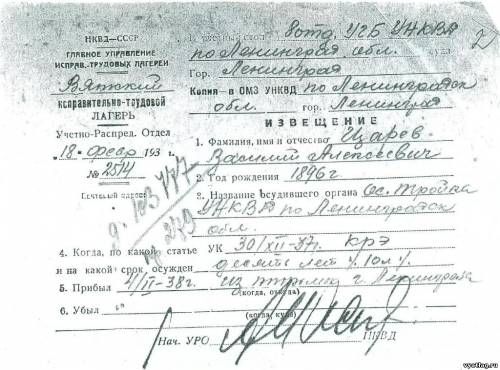 НКВД—СССР
ГЛАВНОЕ УПРАВЛЕНИЕ
ИСПРАВ.-ТРУДОВЫХ ЛАГЕРЕЙ
Вятский
исправительно-трудовой
ЛАГЕРЬ
Учетно-Распред. Отдел
18 февр 193 г.
№ 2514
8 отд. УГБ УНКВД
по Ленинград обл.
2
Гор. Ленинград
Копия—в ОМЗ УНКВД по Ленинградск
обл. гор. Ленинград
ИЗВЕЩЕНИЕ
1. Фамилия, имя и отчество Царев
Василий Алексеевич
2. Год рождения 1896 г
3. Название осудившего органа Ос. Тройка
УНКВД по Ленинградск
обл.
4. Когда, по какой статье УК 30/XII-37г. крэ
и на какой срок осужден десять лет
5. Прибыл 4/II-38г. из г. Ленинграда
(когда, откуда)
6. Убыл
(когда, куда)
Нач. УРО НКВД
vyatlag.ru